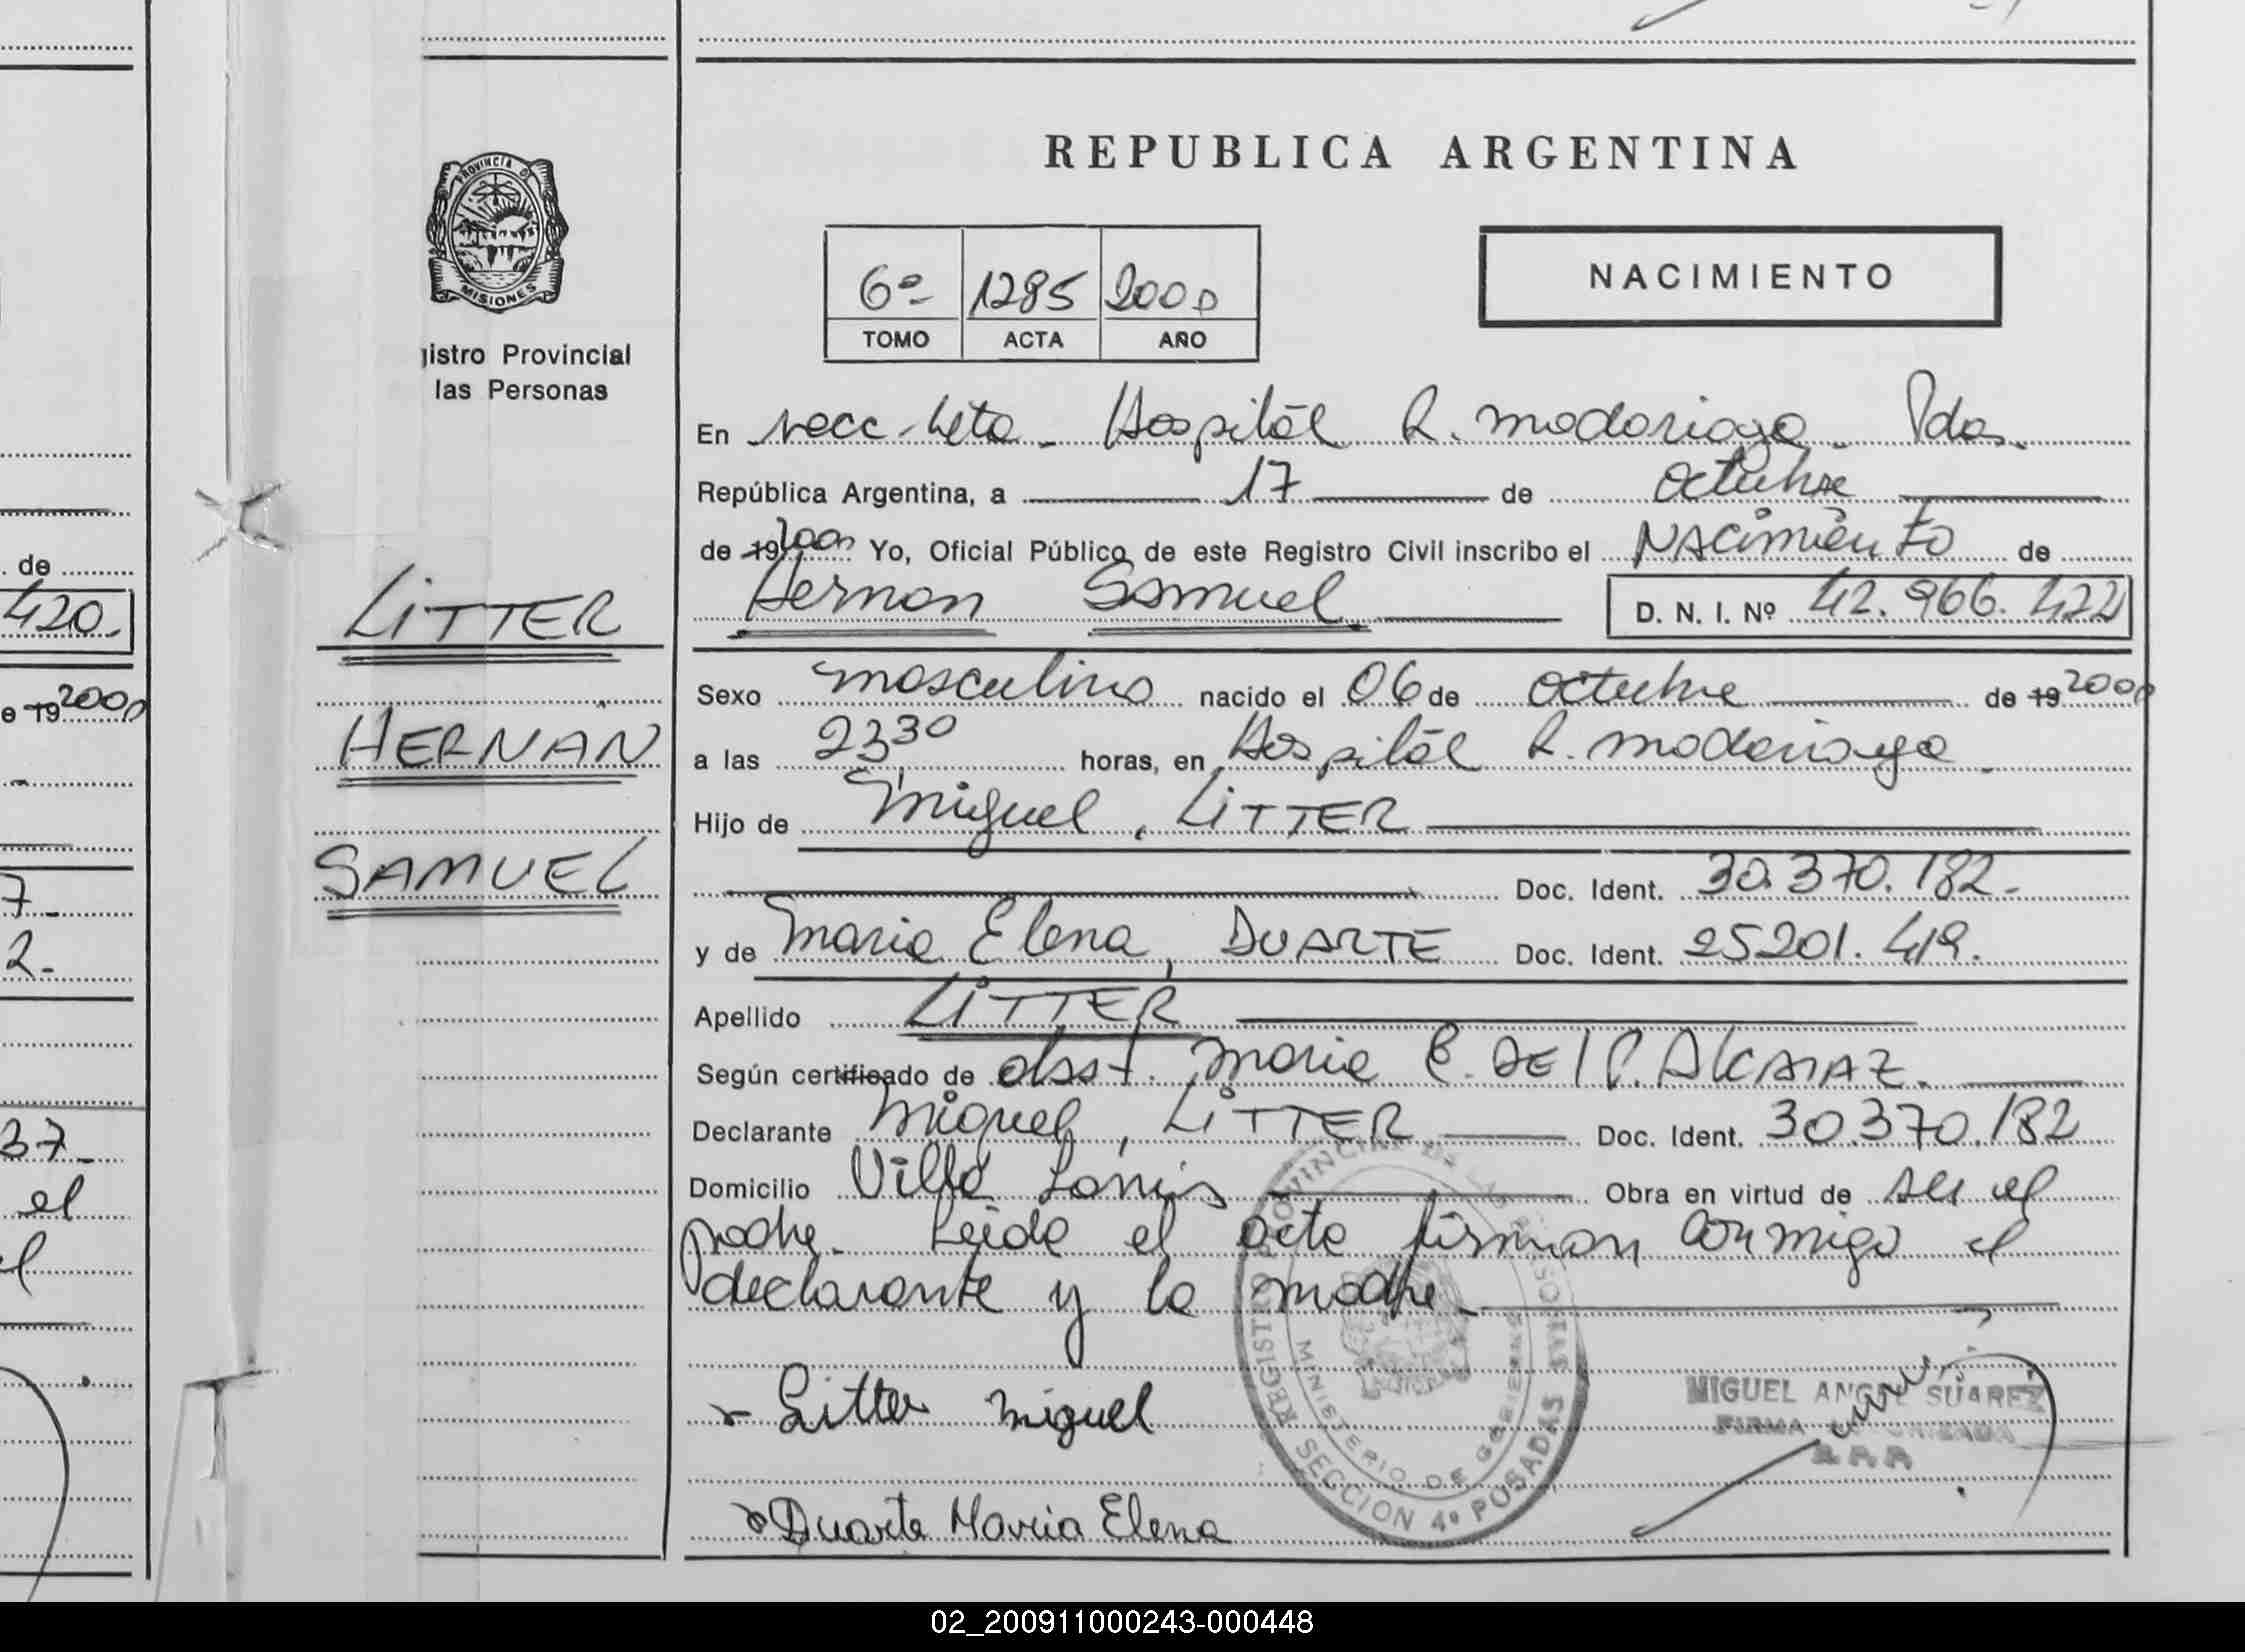 420.-
de
e 19 2000
7.-
2.-
37.-
el
el
PROVINCIA DE
MISIONES
istro Provincial
las Personas
LITTER
HERNÁN
SAMUEL
REPUBLICA ARGENTINA
6º 1285 2000
TOMO ACTA AÑO
NACIMIENTO
En secc. 4ta - Hospital R. Madariaga. Pdas.
República Argentina, a 17 de octubre
de 19 2000 Yo, Oficial Público de este Registro Civil inscribo el NACimiento de
Hernan Samuel D. N. I. Nº 42.966.422
Sexo masculino nacido el 06 de octubre de 19 2000
a las 23,30 horas, en Hospital R. Madariaga -
Hijo de Miguel, LITTER
Doc. Ident. 30.370.182.-
y de Maria Elena, DUARTE Doc. Ident. 25201.419.
Apellido LITTER
Según certificado de obst. Maria E. DE ALCARAZ.
Declarante Miguel, LITTER Doc. Ident. 30.370.182
Domicilio Villa Lanús Obra en virtud de ser el
padre. Leida el acta firman conmigo el
declarante y la madre.-
Litter Miguel
Duarte Maria Elena
REGISTRO PROVINCIAL DE LAS PERSONAS
MINISTERIO DE GOBIERNO
SECCION 4º POSADAS
MIGUEL ANGEL SUAREZ
FIRMA AUTORIZADA
R.P.P.
02_200911000243-000448